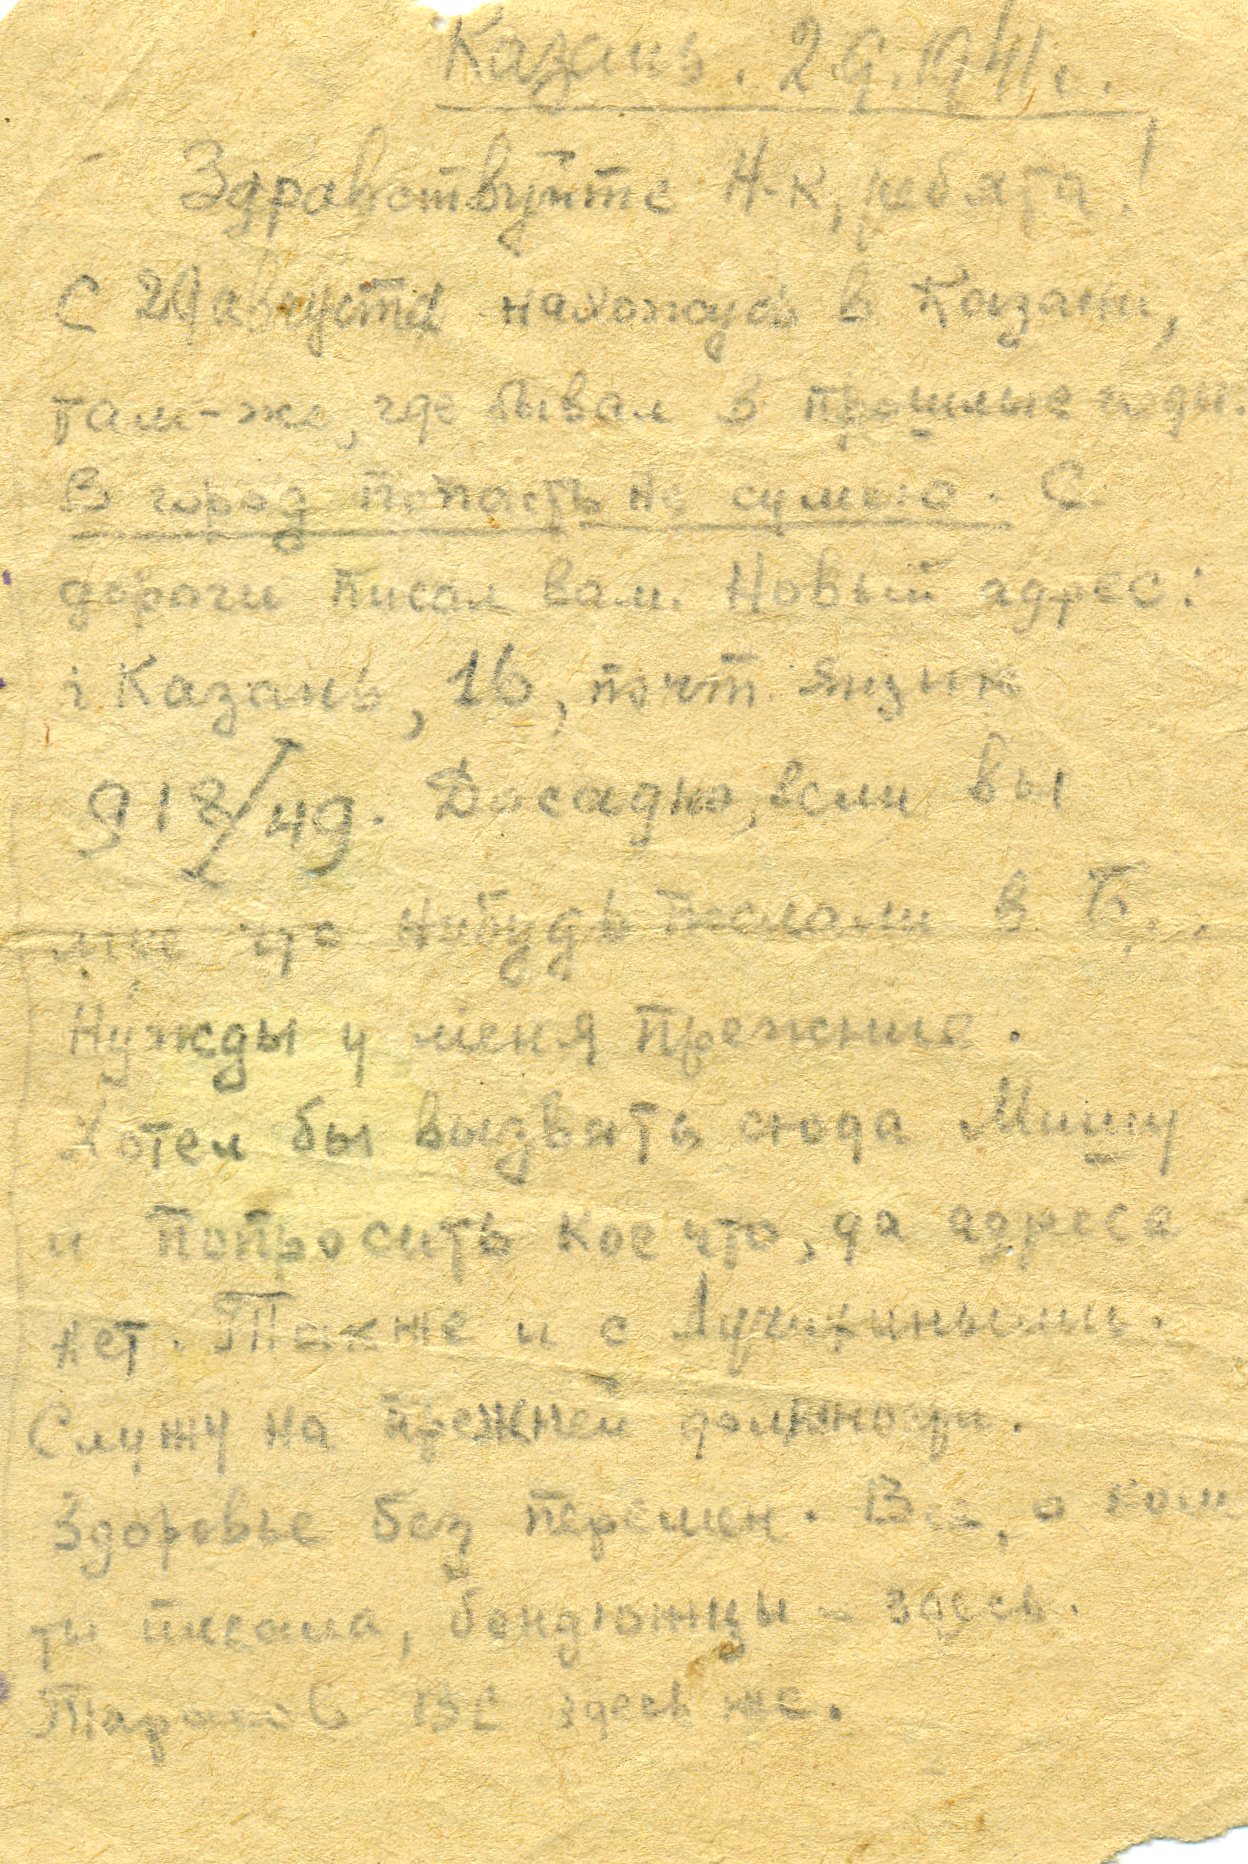 Казань. 2.9.1941 г.
Здравствуйте Н-к, ребята!
С 24 августа нахожусь в Казани,
там-же, где бывал в прошлые годы.
В город попасть не сумею. С
дороги писал вам. Новый адрес:
г Казань, 16, почт ящик
918/49. Досадно, если вы
мне что нибудь послали в Б..
Нужды у меня прежние.
Хотел бы вызвать сюда Мишу
и попросить кое что, да адреса
нет. Также и с
Служу на прежней должности.
Здоровье без перемен. Все, о ком
ты писала, бондюжцы – здесь.
здесь же.